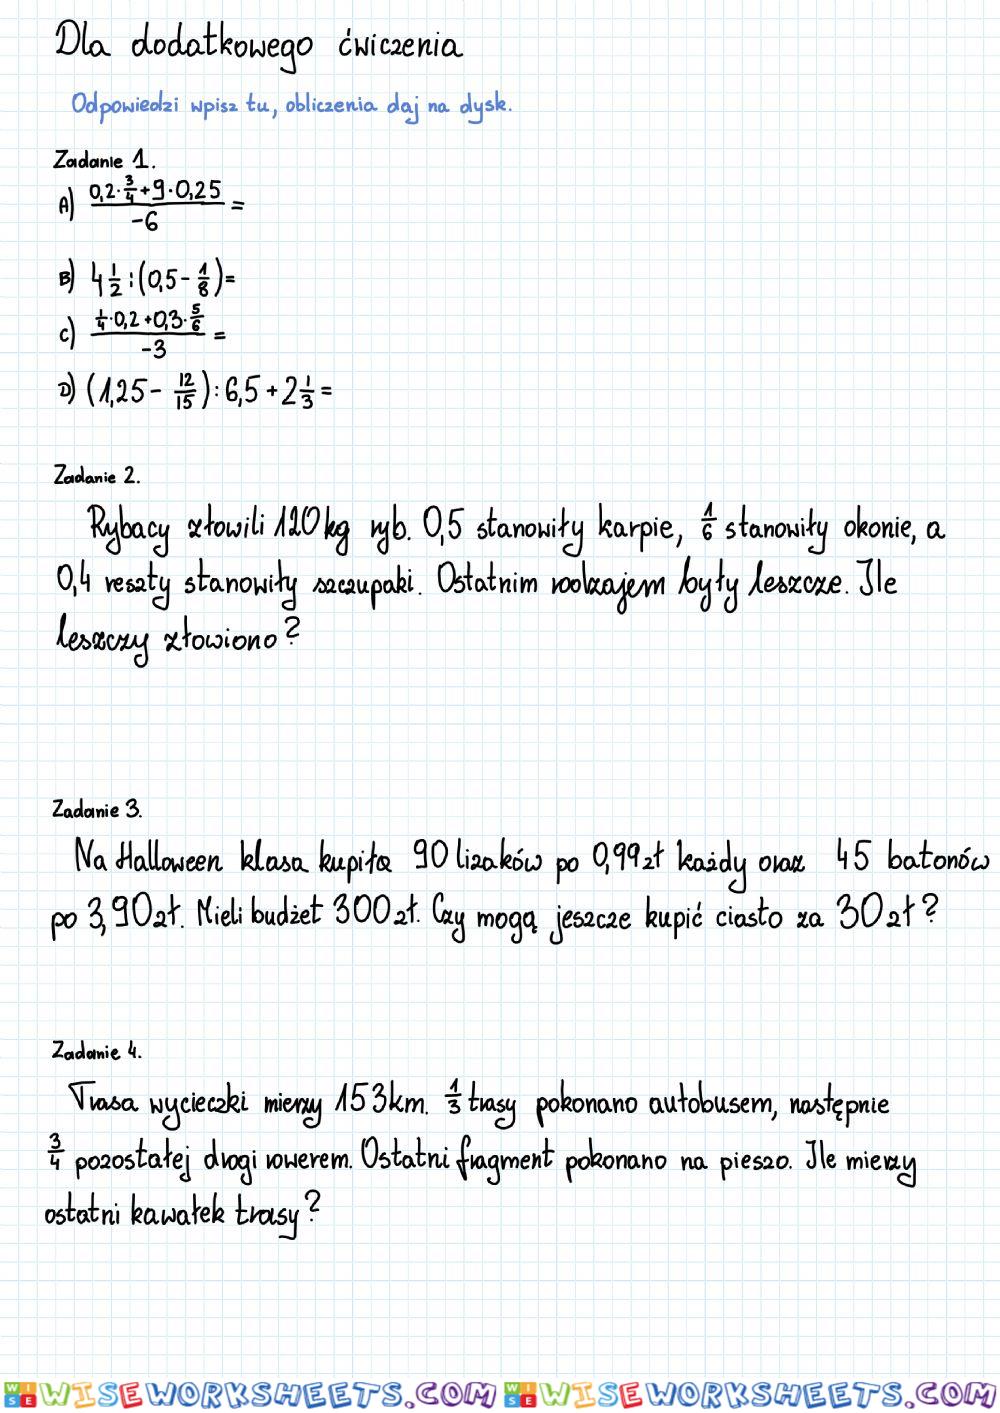 Dla dodatkowego ćwiczenia
Odpowiedzi wpisz tu, obliczenia daj na dysk.
Zadanie 1.
A) (0,2·3/4+9·0,25)/(-6) =
B) 4 1/2 : (0,5 - 1/8) =
C) (1/4·0,2+0,3·5/6)/(-3) =
D) (1,25 - 12/15) : 6,5 + 2 1/3 =
Zadanie 2.
Rybacy złowili 120 kg ryb. 0,5 stanowiły karpie, 1/6 stanowiły okonie, a
0,4 reszty stanowiły szczupaki. Ostatnim rodzajem były leszcze. Ile
leszczy złowiono?
Zadanie 3.
Na Halloween klasa kupiła 90 lizaków po 0,99 zł każdy oraz 45 batonów
po 3,90 zł. Mieli budżet 300 zł. Czy mogą jeszcze kupić ciasto za 30 zł?
Zadanie 4.
Trasa wycieczki mierzy 153 km. 1/3 trasy pokonano autobusem, następnie
3/4 pozostałej drogi rowerem. Ostatni fragment pokonano na pieszo. Ile mierzy
ostatni kawałek trasy?
WISEWORKSHEETS.COM WISEWORKSHEETS.COM